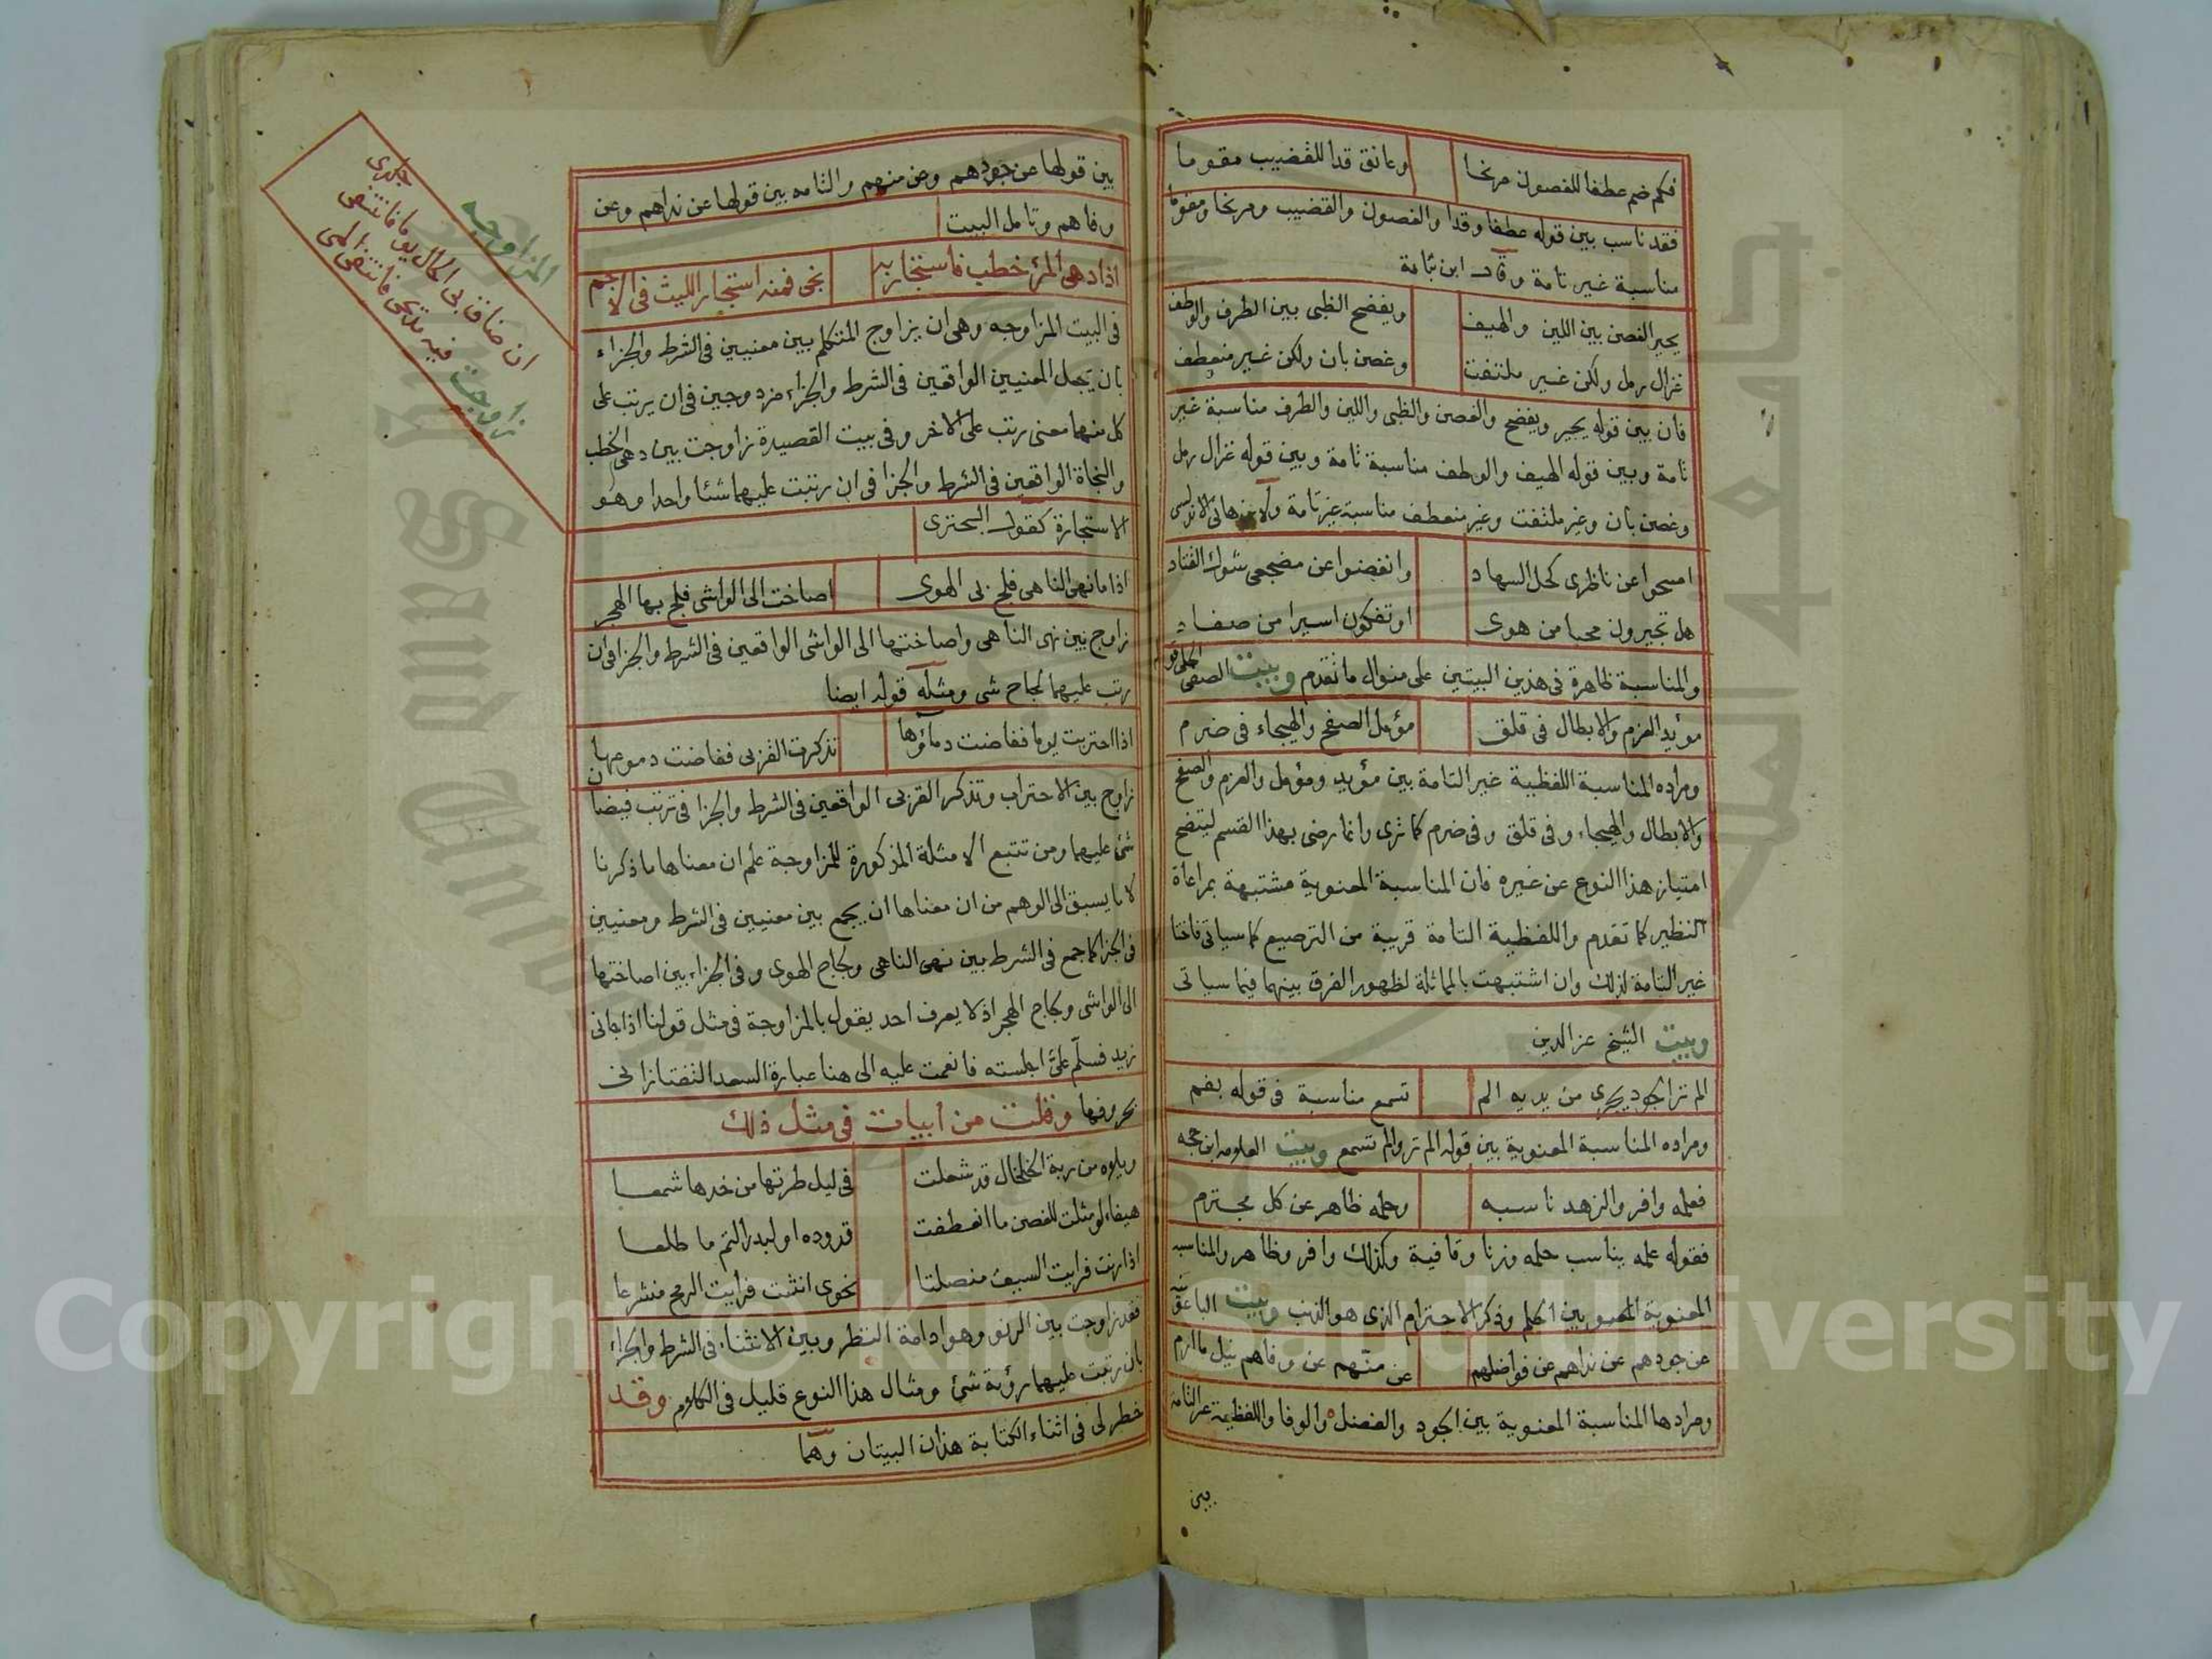 فكم ضم عطفا للغصون مرنحا وعانق قدا للقضيب مقوما
فقد ناسب بين قوله عطفا وقدا والغصون والقضيب ومرنحا ومقوما
مناسبة غير تامة وقال ابن نباتة
يحير الغصن بين اللين والهيف ويفضح الظبي بين الطرف والوطف
غزال رمل ولكن غير ملتفت وغصن بان ولكن غير منعطف
فان بين قوله يحير ويفضح والغصن والظبي واللين والطرف مناسبة غير
تامة وبين قوله الهيف والوطف مناسبة تامة وبين قوله غزال رمل
وغصن بان وغير ملتفت وغير منعطف مناسبة غير تامة ولابن هاني الاندلسي
امسحوا عن ناظري كحل السهاد وانفضوا عن مضجعي شوك القتاد
هل تجيرون محبا من هوى او تفكون اسيرا من صفاد
والمناسبة ظاهرة في هذين البيتين على منوال ما تقدم وبيت الصفي الحلي
مؤيد العزم والابطال في قلق مؤمل الصفح والهيجاء في ضرم
ومراده المناسبة اللفظية غير التامة بين مؤيد ومؤمل والعزم والصفح
والابطال والهيجاء وفي قلق وفي ضرم كما ترى وانما رضي بهذا القسم ليتضح
امتياز هذا النوع عن غيره فان المناسبة المعنوية مشتبهة بمراعاة
النظير كما تقدم واللفظية التامة قريبة من الترصيع كما سياتي فاختا
غير التامة لذلك وان اشتبهت بالمماثلة لظهور الفرق بينهما فيما سياتي
وبيت الشيخ عز الدين
الم تر الجود يجري من يديه الم تسمع مناسبة في قوله بفم
ومراده المناسبة المعنوية بين قوله الم تر والم تسمع وبيت العلامه ابن حجه
فعلمه وافر والزهد ناسبه وحلمه ظاهر عن كل مجترم
فقوله علمه يناسب حلمه وزنا وقافية وكذلك وافر وظاهر والمناسبه
المعنوية بين الحلم وذكر الاجترام الذي هو الذنب وبيت الباعونية
عن جودهم عن نداهم عن فواضلهم عن منهم عن وفاهم نيل ما ارم
ومرادها المناسبة المعنوية بين الجود والفضل والوفا واللفظية غير التامة
بين
بين قولها عن جودهم وعن منهم والتامه بين قولها عن نداهم وعن
وفاهم وتامل البيت
اذا دهى المرء خطب فاستجار به نجى فمنه استجار الليث في الاجم
في البيت المزاوجه وهي ان يزاوج المتكلم بين معنيين في الشرط والجزاء
بان يجعل المعنيين الواقعين في الشرط والجزاء مزدوجين في ان يرتب على
كل منهما معنى رتب على الاخر وفي بيت القصيدة زاوجت بين دهي الخطب
والنجاة الواقعين في الشرط والجزا في ان رتبت عليهما شئا واحدا وهو
الاستجارة كقول البحتري
اذا ما نهى الناهي فلج بي الهوى اصاخت الى الواشي فلج بها الهجر
زاوج بين نهى الناهي واصاختها الى الواشي الواقعين في الشرط والجزا في ان
رتب عليهما لجاج شي ومثله قوله ايضا
اذا احتربت يوما ففاضت دماؤها تذكرت القربى ففاضت دموعها
زاوج بين الاحتراب وتذكر القربى الواقعين في الشرط والجزا في ترتب فيضان
شئ عليهما ومن تتبع الامثلة المذكورة للمزاوجة علم ان معناها ما ذكرنا
لا ما يسبق الى الوهم من ان معناها ان يجمع بين معنيين في الشرط ومعنيين
في الجزا كما جمع في الشرط بين نهى الناهي ولجاج الهوى وفي الجزاء بين اصاختها
الى الواشي ولجاج الهجر اذ لا يعرف احد يقول بالمزاوجة في مثل قولنا اذا جاني
زيد فسلم علي اجلسته فانعمت عليه الى هنا عبارة السعد التفتازاني
بحروفها وقلت من أبيات في مثل ذلك
من ربة الخلخال قد شعلت في ليل طرتها من خدها شمعا
هيفاء لو مثلت للغصن ما انعطفت قدوده او لبدر التم ما طلعا
اذا رنت فرايت السيف منصلتا نحوى انثنت فرايت الرمح منشرعا
فقد زاوجت بين الرنو وهو ادامة النظر وبين الانثناء في الشرط والجزاء
بان رتبت عليهما رؤية شئ ومثال هذا النوع قليل في الكلام وقد
خطر لى في اثناء الكتابة هذان البيتان وهما
المزاوجه
ان ضاق بي الحال يوما فانتهى
زاوجت فيه مدحي فانتهى المى